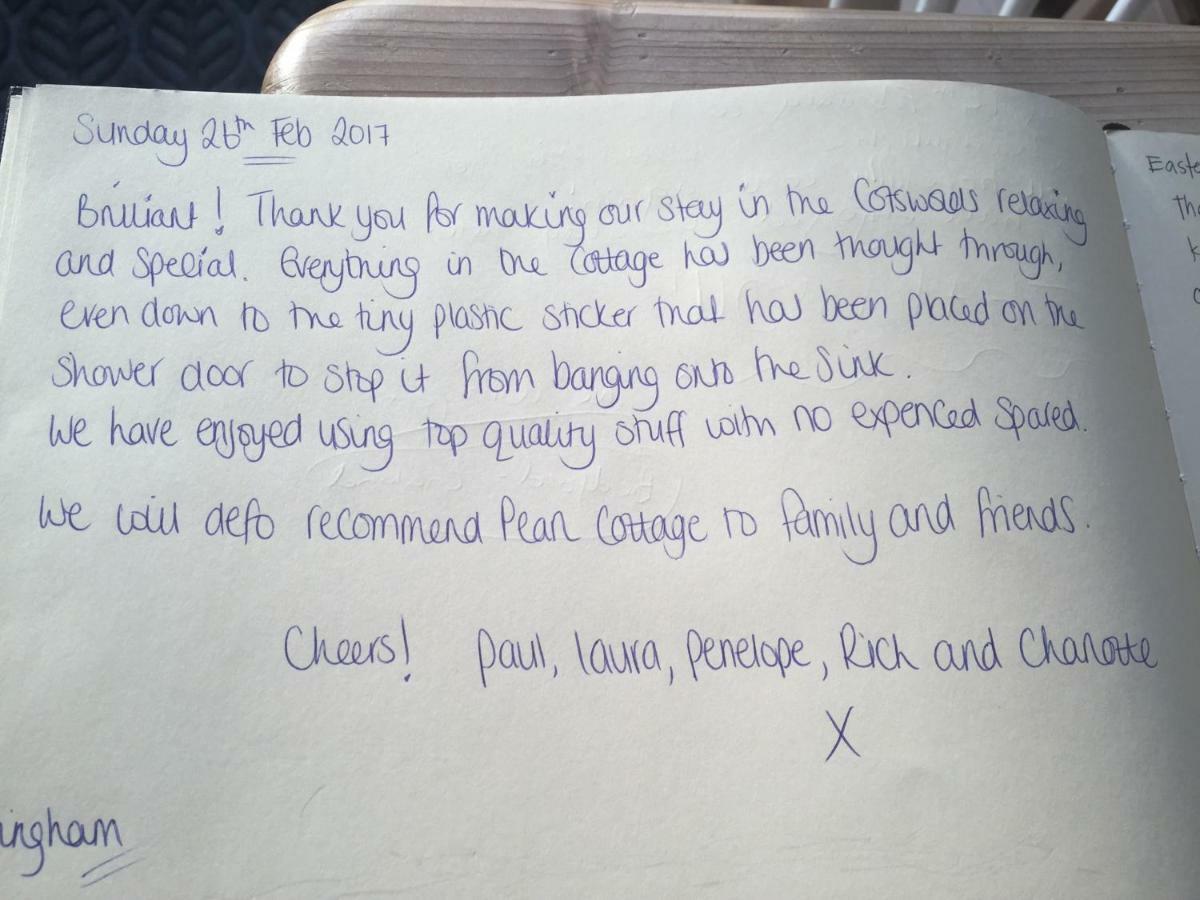 Sunday 26th Feb 2017
Brilliant! Thank you for making our stay in the Cotswolds relaxing
and special. Everything in the Cottage has been thought through,
even down to the tiny plastic sticker that has been placed on the
shower door to stop it from banging onto the sink.
We have enjoyed using top quality stuff with no expenced spared.
We will defo recommend Pearl Cottage to family and friends.
Cheers! Paul, Laura, Penelope, Rich and Charlotte
X
ingham
Easte
the
K